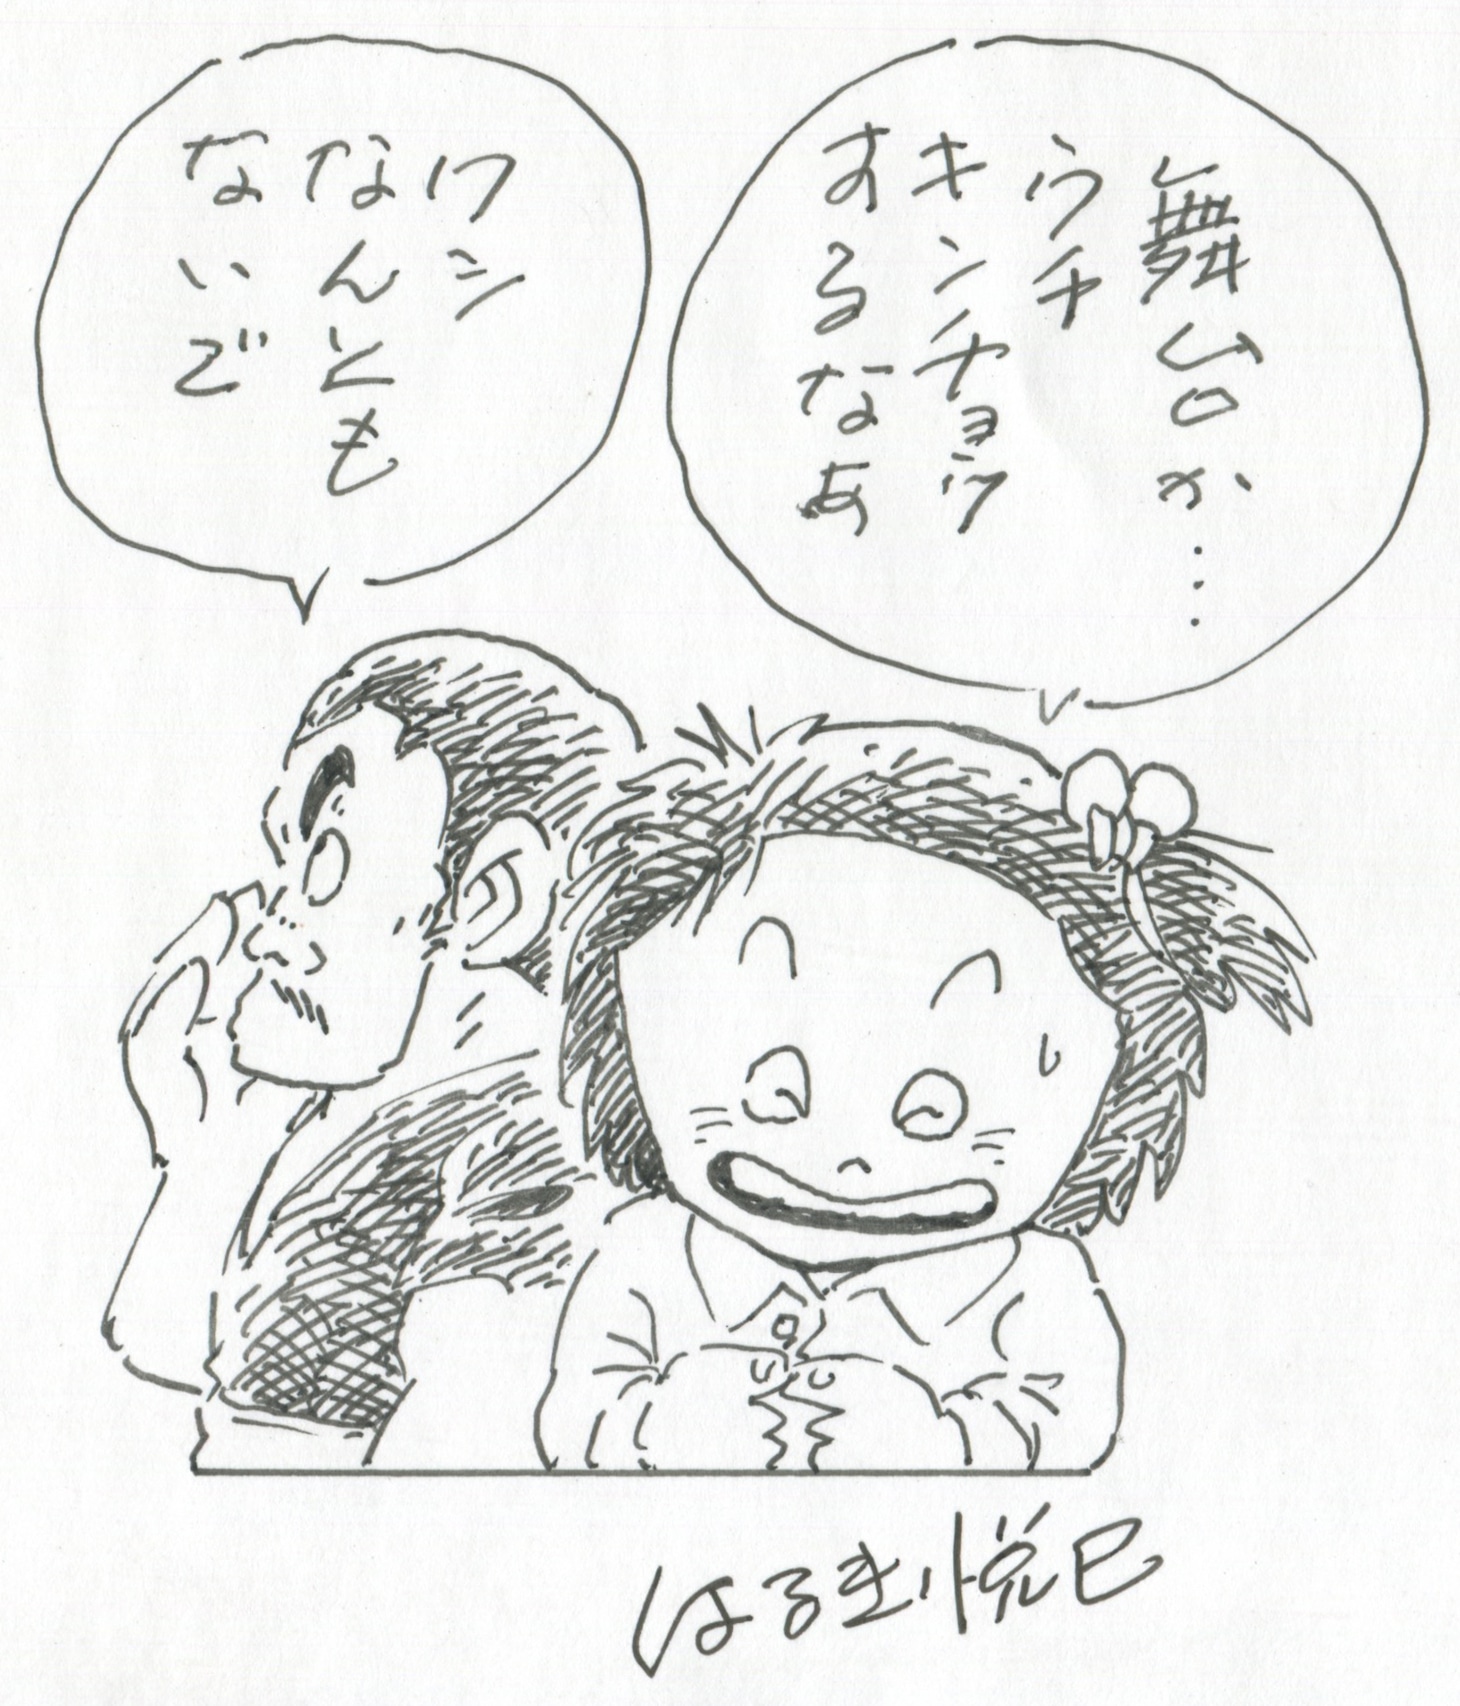 舞台か・・・
ウチ
キンチョウ
するなあ
ワシ
なんとも
ないで
はるき悦巳